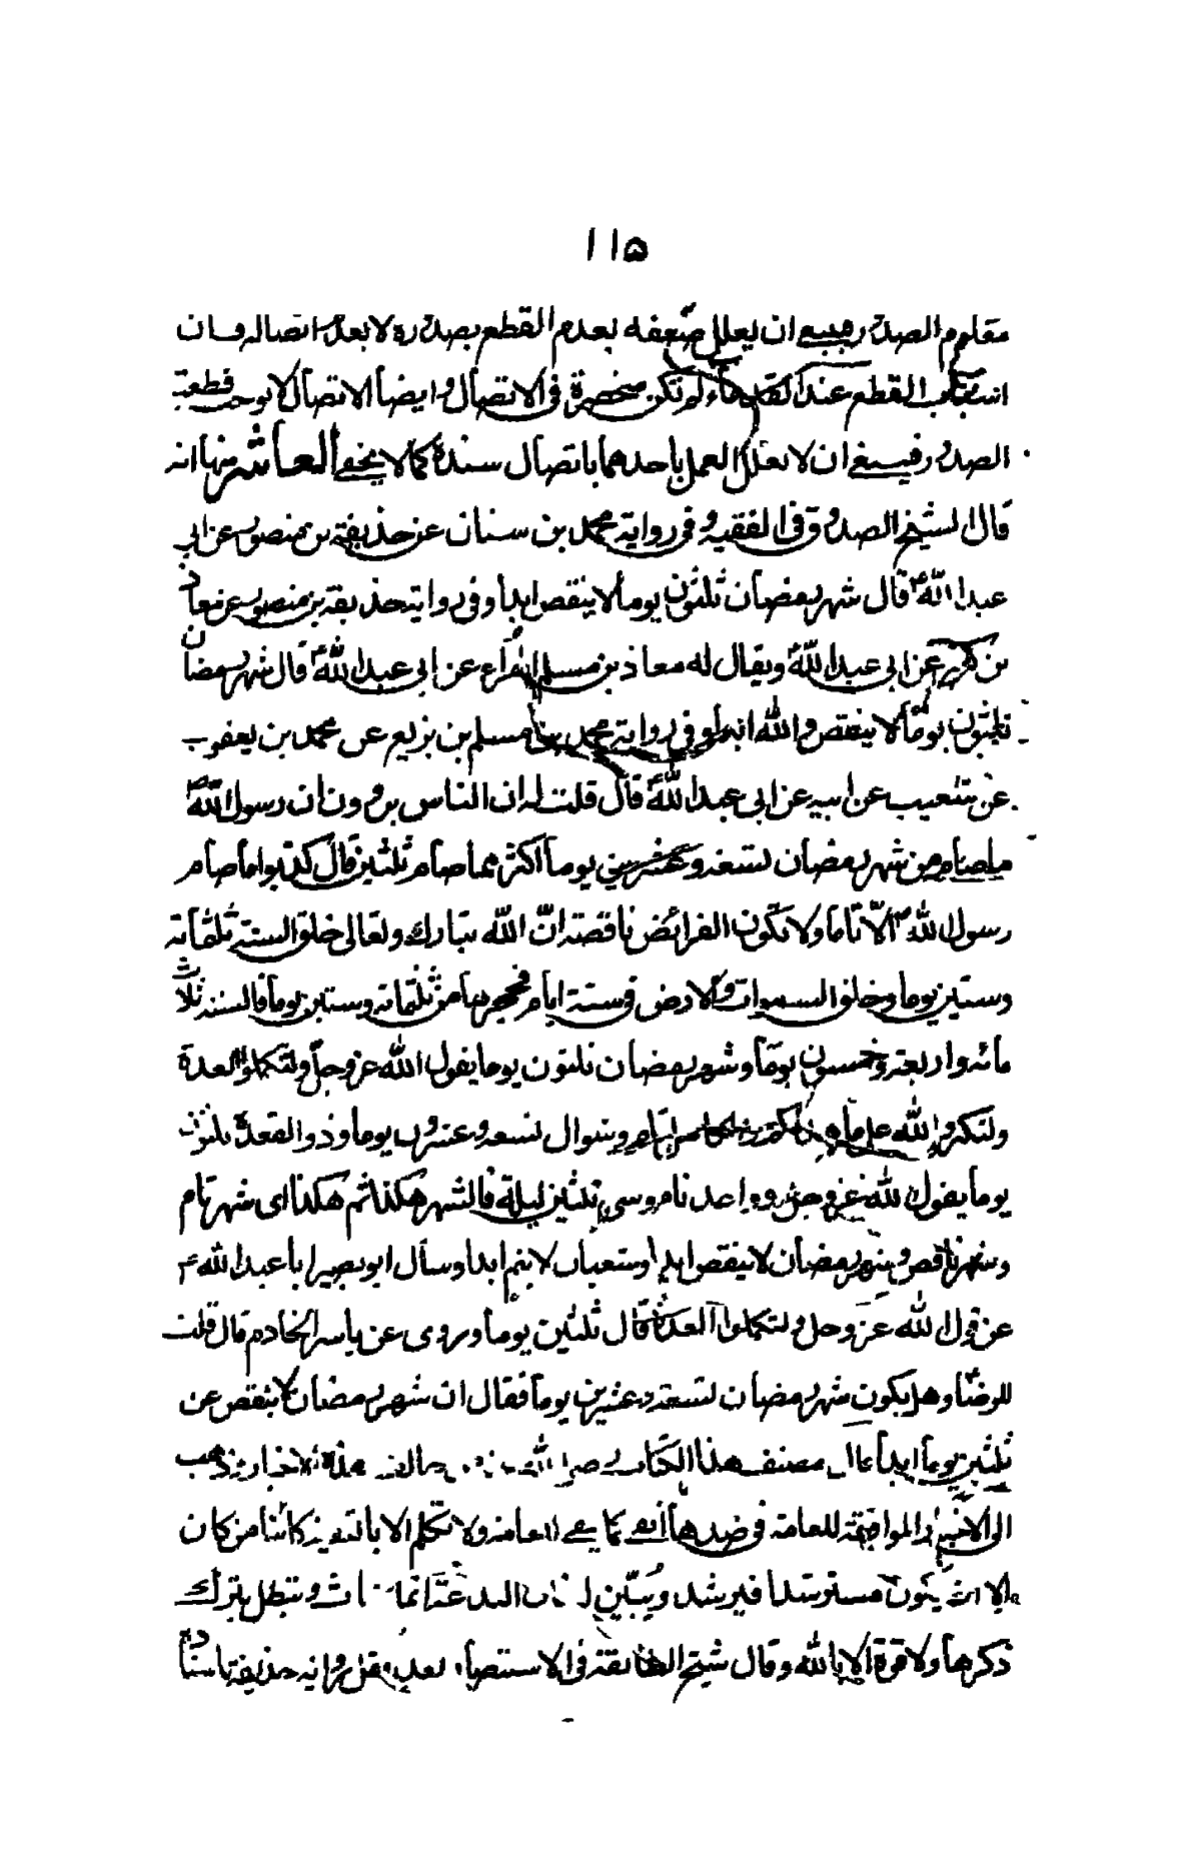 ١١٥
معلوم الصدور فينبغي ان يعلل ضعفه بعدم القطع بصدوره لا بعدم اتصاله فان
اسباب القطع عند القدماء لم تكن منحصرة فى الاتصال وايضا الاتصال لا يوجب قطعية
الصدور فينبغى ان لا يعلل العمل باحدهما باتصال سنده كما لا يخفى العاشر منها انه
قال الشيخ الصدوق فى الفقيه وفى رواية محمد بن سنان عن حذيفة بن منصور عن ابى
عبد الله ع قال شهر رمضان ثلثون يوما لا ينقص ابدا وفى رواية حذيفة بن منصور عن معاذ
بن كثير عن ابى عبد الله ع ويقال له معاذ بن مسلم الهراء عن ابى عبد الله ع قال شهر رمضان
ثلثون يوما لا ينقص والله ابدا وفى رواية محمد بن مسلم بن بزيع عن محمد بن يعقوب
عن شعيب عن ابيه عن ابى عبد الله ع قال قلت له ان الناس يروون ان رسول الله ص
ما صام من شهر رمضان تسعة وعشرين يوما اكثر مما صام ثلثين قال كذبوا ما صام
رسول الله ص الّا تاما ولا تكون الفرائض ناقصة انّ الله تبارك وتعالى خلق السنة ثلثمائة
وستين يوما وخلق السموات والارض فى ستة ايام فحجرها من ثلثمائة وستين يوما فالسنة ثلاث
مائة واربعة وخمسون يوما وشهر رمضان ثلثون يوما يقول الله عز وجل ولتكملوا العدة
ولتكبروا الله على ما هديكم وشوال تسعة وعشرون يوما وذو القعدة ثلثون
يوما يقول الله عز وجل وواعدنا موسى ثلثين ليلة فالشهر هكذا ثم هكذا اى شهر تام
وشهر ناقص وشهر رمضان لا ينقص ابدا وشعبان لا يتم ابدا وسأل ابو بصير ابا عبد الله ع
عن قول الله عز وجل ولتكملوا العدة قال ثلثين يوما وروى عن ياسر الخادم قال قلت
للرضا ع هل يكون شهر رمضان تسعة وعشرين يوما فقال ان شهر رمضان لا ينقص عن
ثلثين يوما ابدا قال مصنف هذا الكتاب هذه الاخبار وذهب
الى الاخبار الموافقة للعامة فى ضدها اتقى كما يتقى العامة ولا تكلم الا بالتقية كائنا من كان
الا ان يكون مسترشدا فيرشد ويبيّن له فان البدعة انما تماث وتبطل بترك
ذكرها ولا قوة الا بالله وقال شيخ الطائفة فى الاستبصار بعد نقل رواية حذيفة باسناد